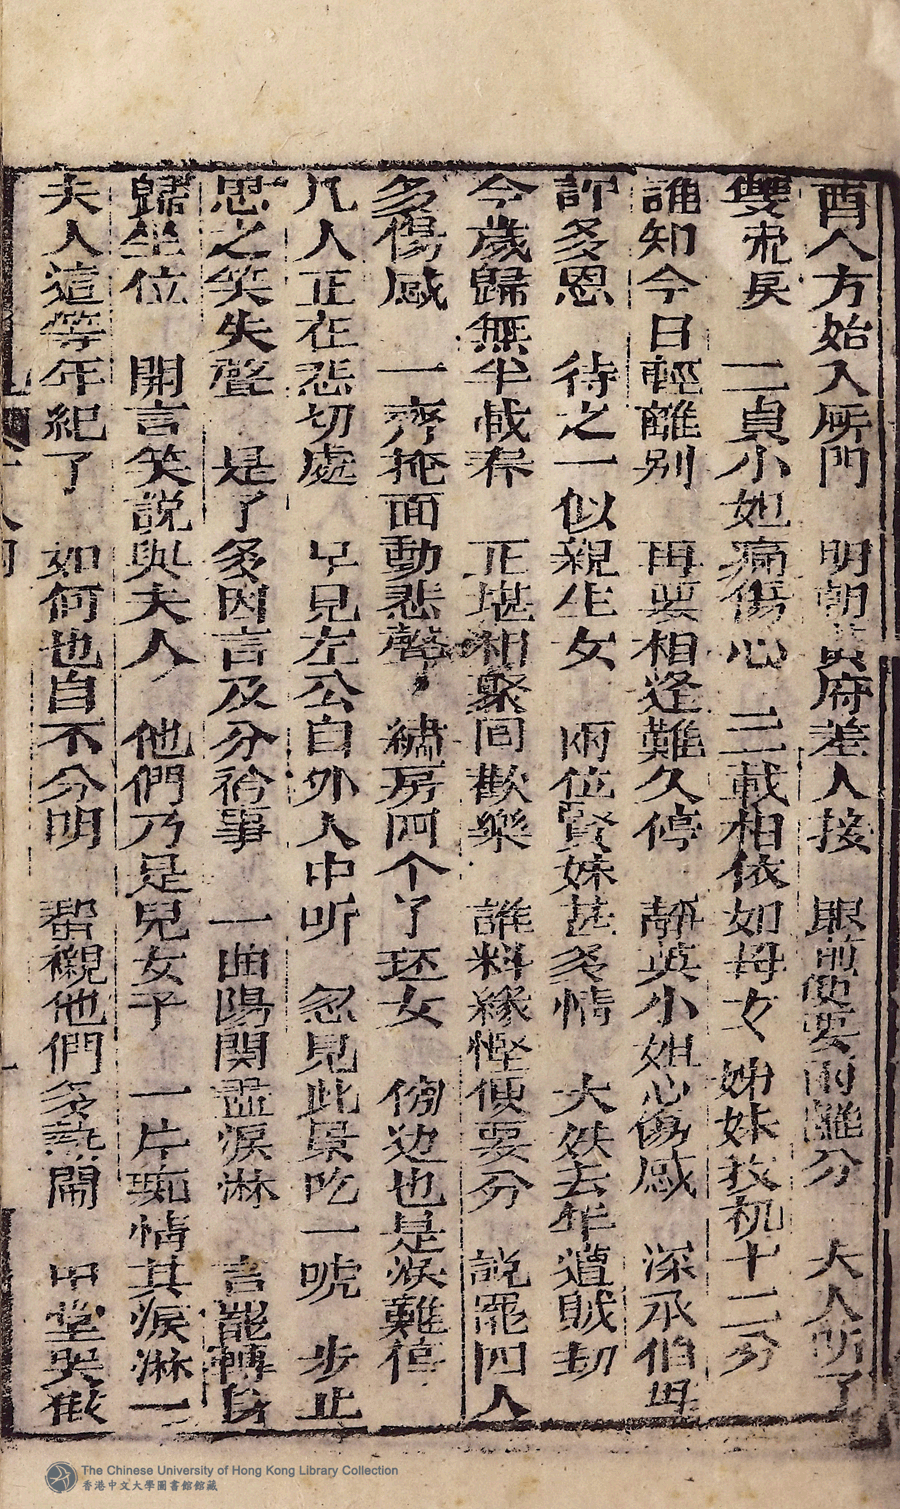 酉人方始入所門　明朝　府差人接　眼前便要兩離分　夫人听了
雙　戾　二貞小如痛傷心　三載相依如母女　姊妹投机十二分
誰知今日輕離别　再要相逢難久停　靜英小姐心傷感　深承伯母
許多恩　待之一似親生女　兩位賢妹甚多情　大妖去年遭賊刧
今歲歸無半載存　正堪相聚同歡樂　誰料緣慳便要分　説罷四人
多傷感　一齊掩面動悲聲　繡房阿个了环女　傍边也是淚難停
几人正在悲切處　早見左公自外人中听　忽見此景吃一唬　步止
思之笑失聲　是了多因言及分衿事　一曲陽関盡淚淋　言罷轉身
歸坐位　開言笑説與夫人　他們乃是兒女子　一片痴情其淚淋一
夫人這等年紀了　如何也自不分明　帮襯他們多熱鬧　中堂哭
The Chinese University of Hong Kong Library Collection
香港中文大學圖書館館藏